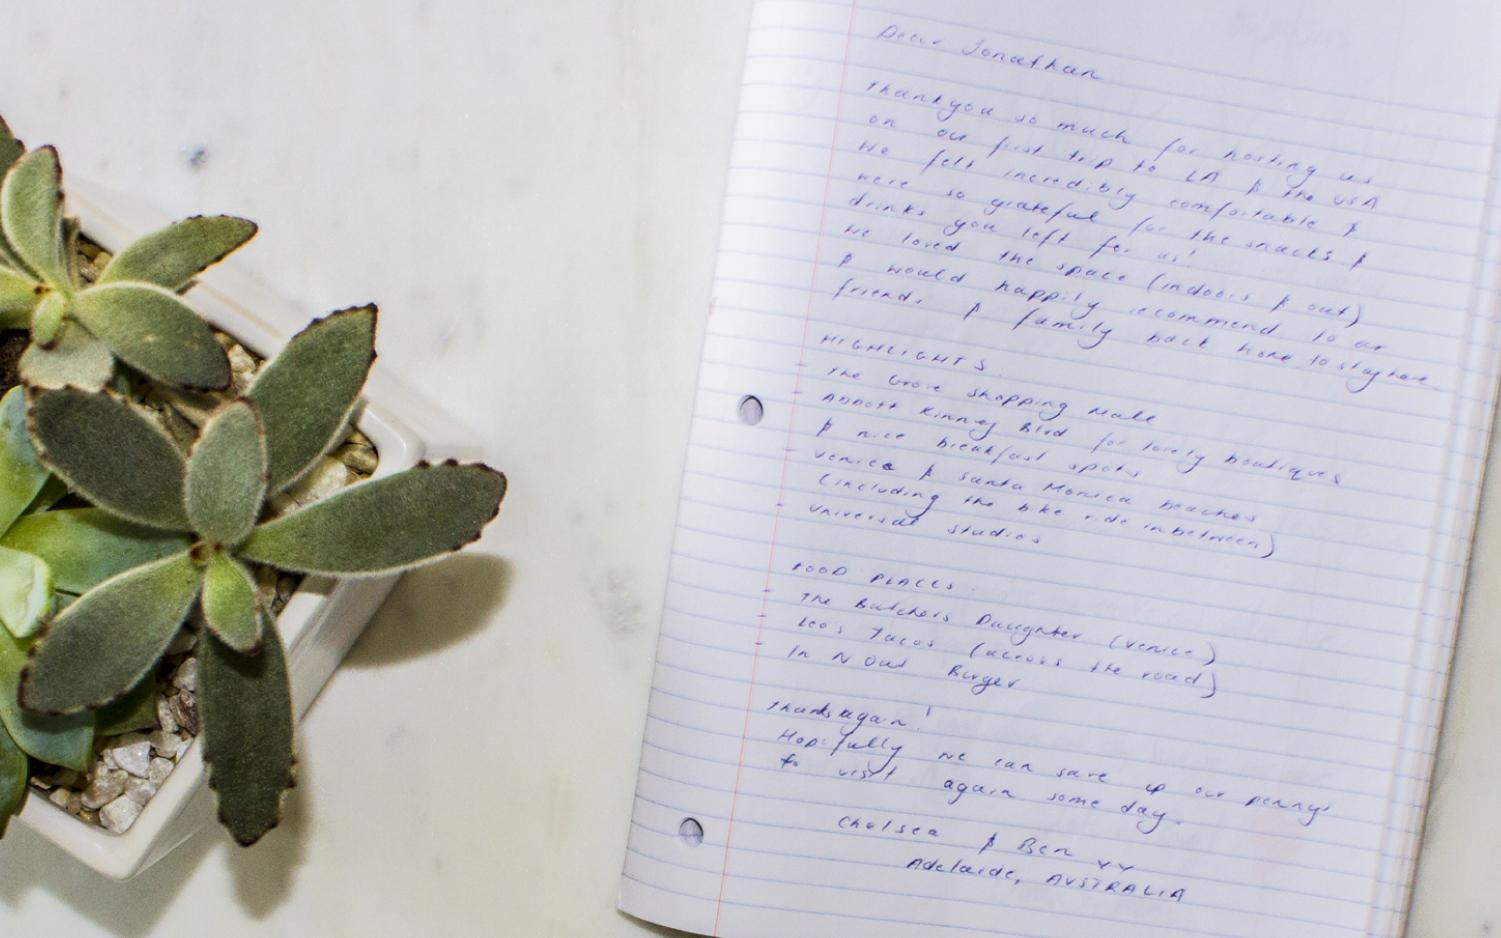 Dear Jonathan
Thankyou so much for hosting us
on our first trip to LA & the USA
We felt incredibly comfortable &
were so grateful for the snacks &
drinks you left for us!
We loved the space (indoors & out)
& would happily recommend to our
friends & family back home to stay here.
HIGHLIGHTS
- The Grove Shopping Mall
- Abbott Kinney Blvd for lovely boutiques
& nice breakfast spots
- Venice & Santa Monica beaches
(including the bike ride inbetween)
- Universal Studios
FOOD PLACES
- The Butchers Daughter (Venice)
- Leo's Tacos (across the road)
- In N Out Burger
Thanks again!
Hopefully we can save up our pennys
to visit again some day.
Chelsea & Ben xx
Adelaide, AUSTRALIA